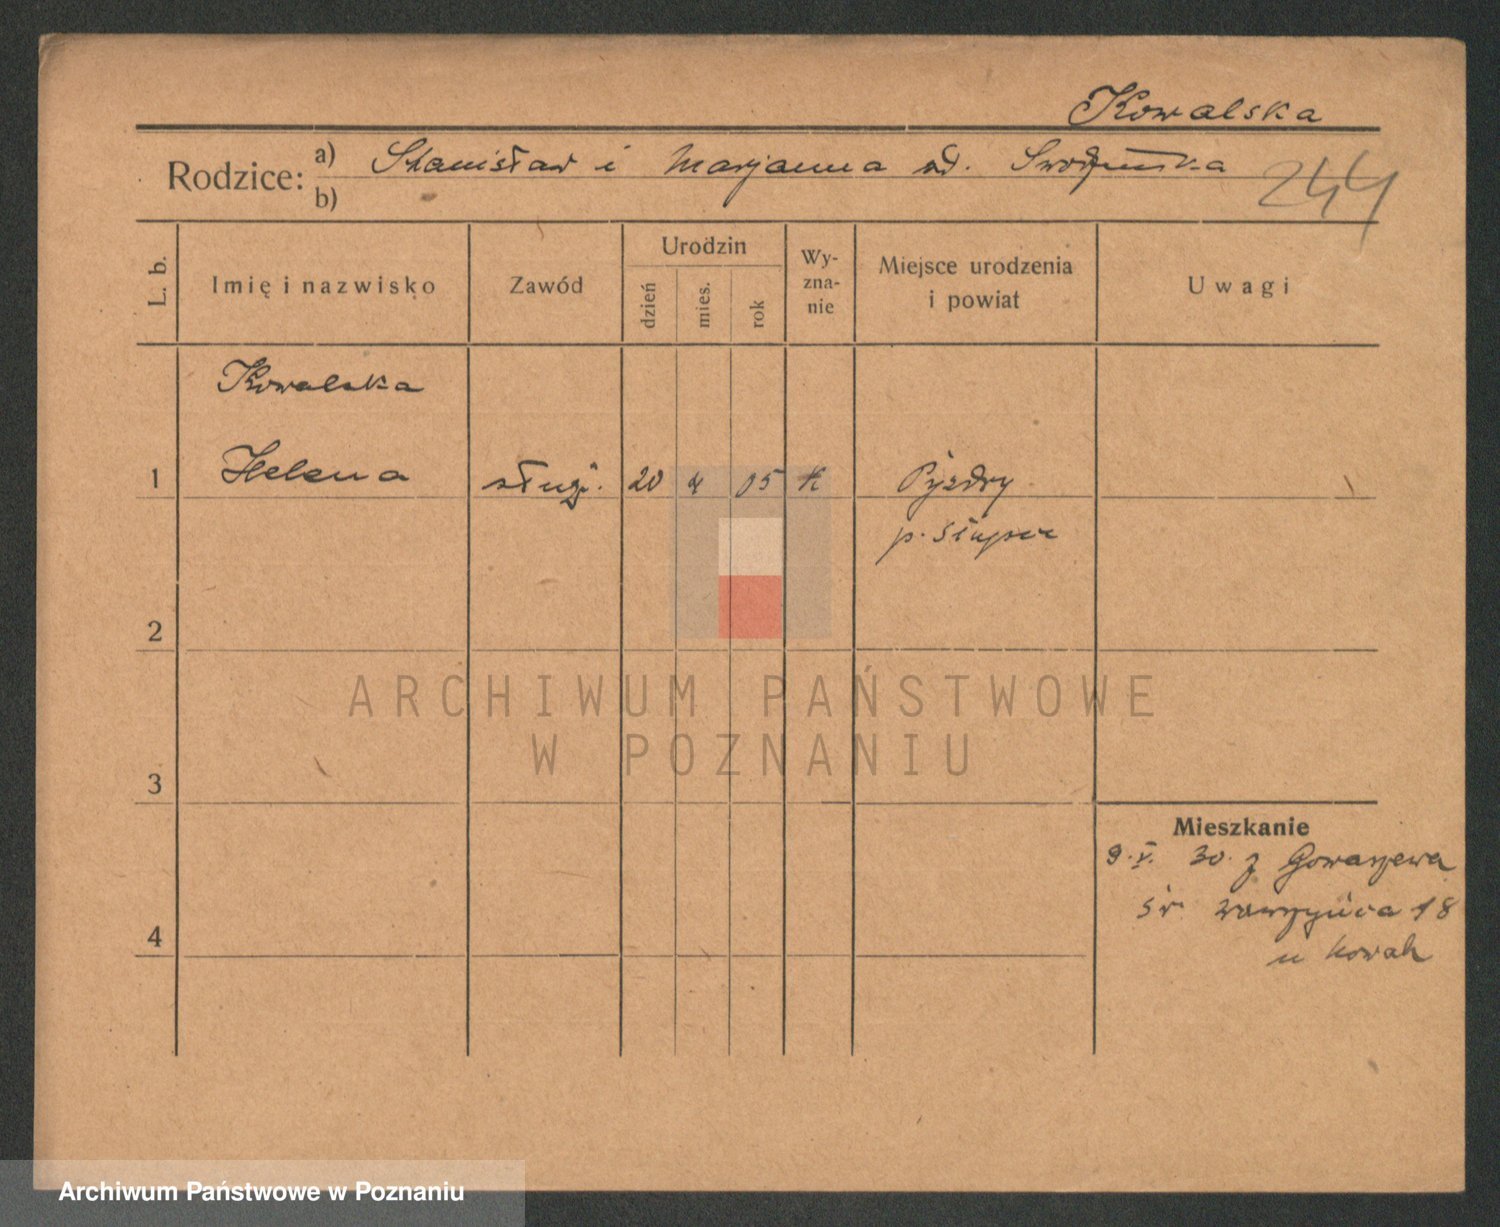 Kowalska
Rodzice: a) Stanisław i Marjanna
b)
244
L. b.
Imię i nazwisko
Zawód
Urodzin
dzień
mies.
rok
Wy-
zna-
nie
Miejsce urodzenia
i powiat
Uwagi
Kowalska
1 Helena służ. 20 4 05 K Pyzdry
p. Słupca
2
3
4
Mieszkanie
9.V. 30. z
św Wawrzyńca 18
u Nowak
ARCHIWUM PAŃSTWOWE
W POZNANIU
Archiwum Państwowe w Poznaniu